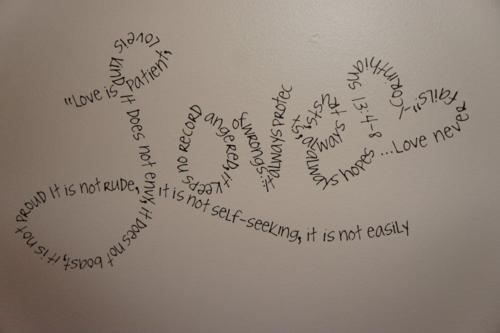 "Love is patient,
love is kind it does not envy, it does not boast, it is not proud it is not rude,
it is not self-seeking, it is not easily
angered, it keeps no record
of wrongs...it
always protects,
always trusts,
always hopes ...Love never fails"~
1 Corinthians 13:4-8